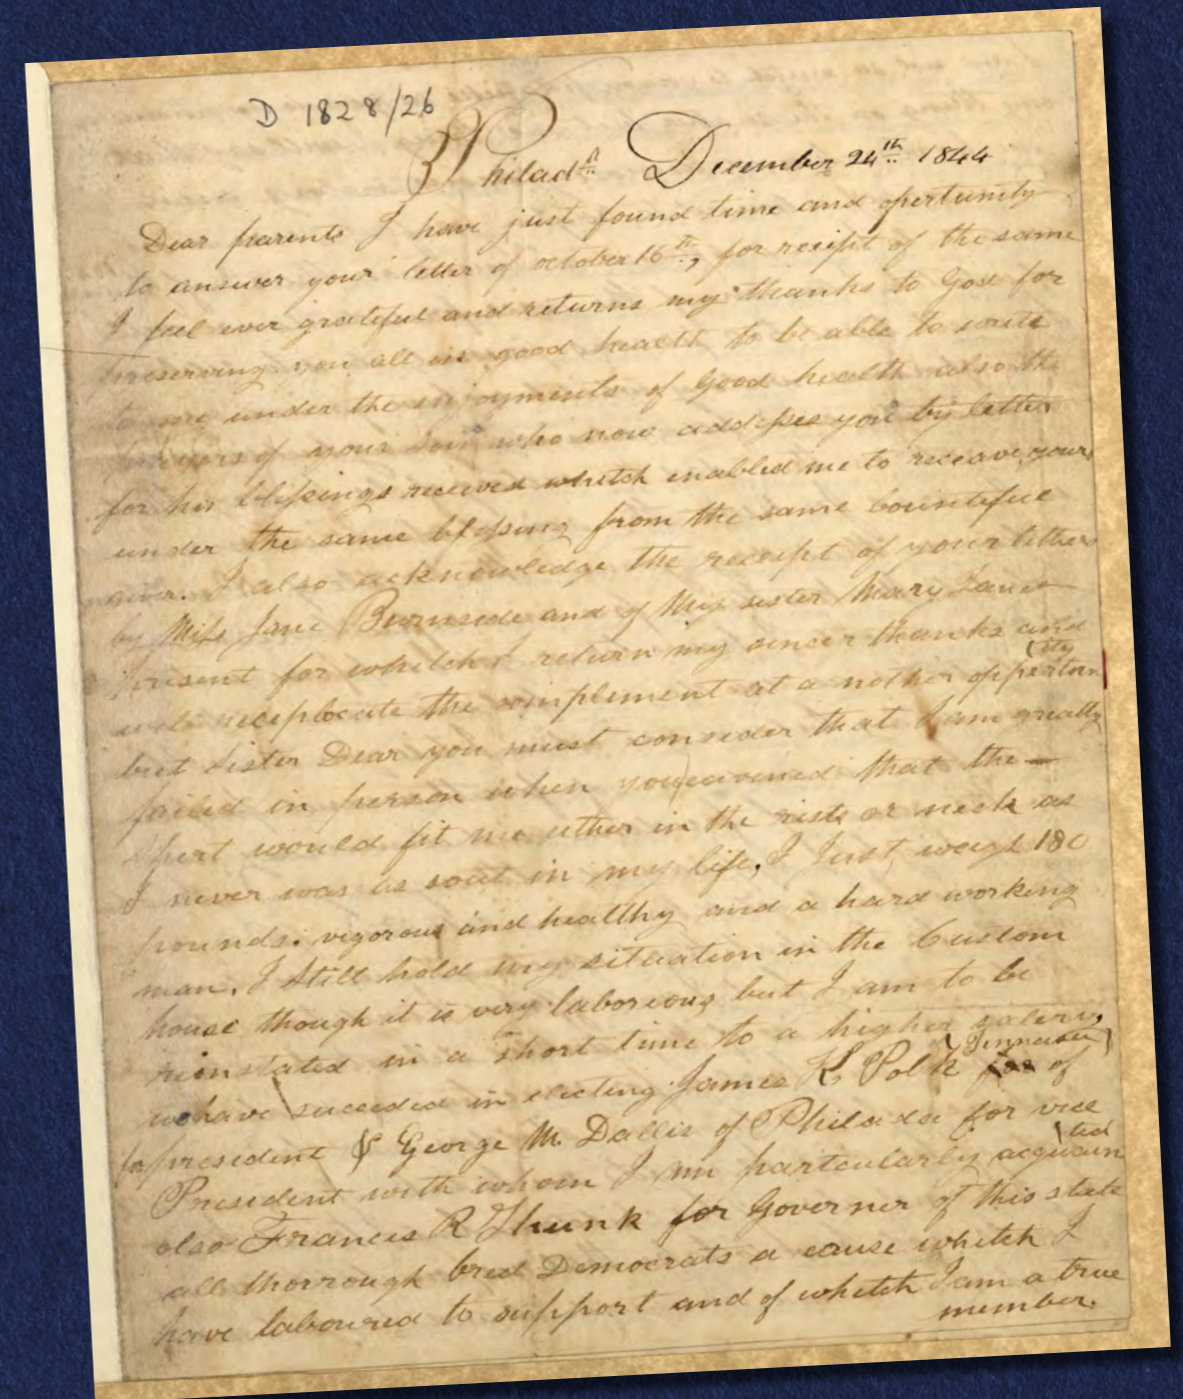 D 1828/26
Philad.ª December 24th 1844
Dear parents I have just found time and opertunity
to answer your letter of october 16th, for receipt of the same
I feel ever grateful and returns my thanks to God for
preserving you all in good health to be able to write
to me under the injoyments of Good health also the
prayers of your son who now addesses you by letter
for his blessings received whitch enabled me to receave yours
under the same blessing from the same bountifull
giver. I also acknowledge the receipt of your letter
by Miss Jane Burnside and of My sister Mary Janes
present for whitch I return my sincer thanks and
will the complement at a nother oppertun(ity
but Sister Dear you must consider that I am greatly
failed in person when you that the —
Shirt would fit me uther in the rists or neck as
I never was as sout in my life, I Just weigh 180
pounds. vigorous and healthy and a hard working
man. I Still hold my situation in the Custom
house though it is very laboreous but I am to be
rienstated in a short time to a higher salery,
we have succeeded in electing James K Polk (Tennessee) of
for president & George M. Dallis of Philada for vice
President with whom I am particularly acquain(ted
also Francis R Shunk for Governer of this state
all thorrough bred Democrats a cause whitch I
have laboured to support and of whitch I am a true
member.